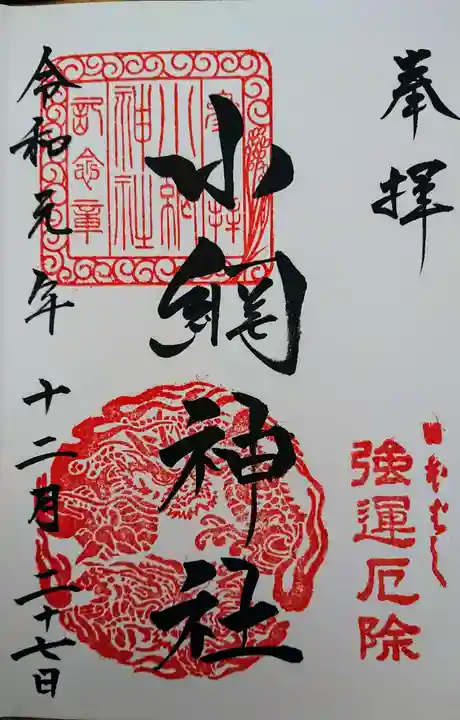 奉拝
強運厄除
小網神社
参拝
小網
神社
記念章
令和元年 十二月 二十七日